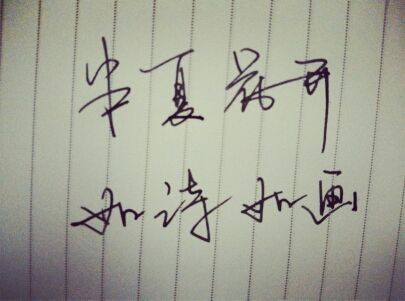 半夏花开
如诗如画